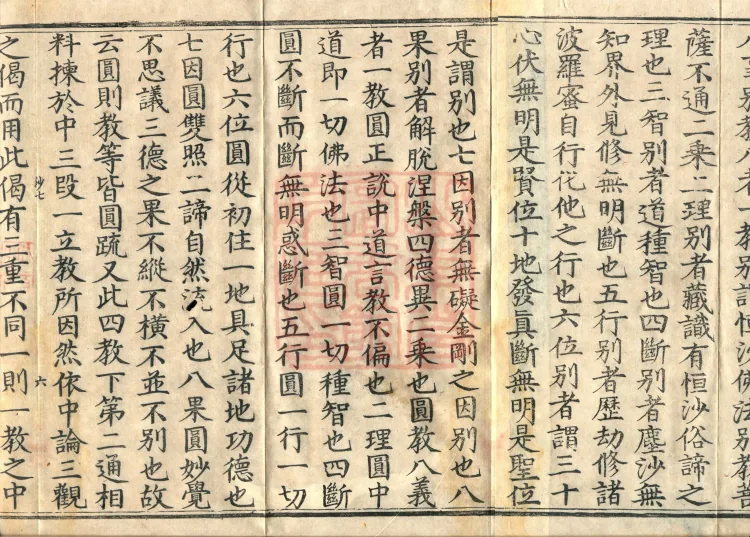 別教八者一教別說恒沙佛法別教菩
薩不通二乘二理別者藏識有恒沙俗諦之
理也三智別者道種智也四斷別者塵沙無
知界外見修無明斷也五行別者歷劫修諸
波羅蜜自行化他之行也六位別者謂三十
心伏無明是賢位十地發真斷無明是聖位
是謂別也七因別者無礙金剛之因別也八
果別者解脫涅槃四德異二乘也圓教八義
者一教圓正說中道言教不偏也二理圓中
道即一切佛法也三智圓一切種智也四斷
圓不斷而斷無明惑斷也五行圓一行一切
行也六位圓從初住一地具足諸地功德也
七因圓雙照二諦自然流入也八果圓妙覺
不思議三德之果不縱不橫不並不別也故
云圓則教等皆圓疏又此四教下第二通相
料揀於中三段一立教所因然依中論三觀
抄七
六
之偈而用此偈有三重不同一則一教之中